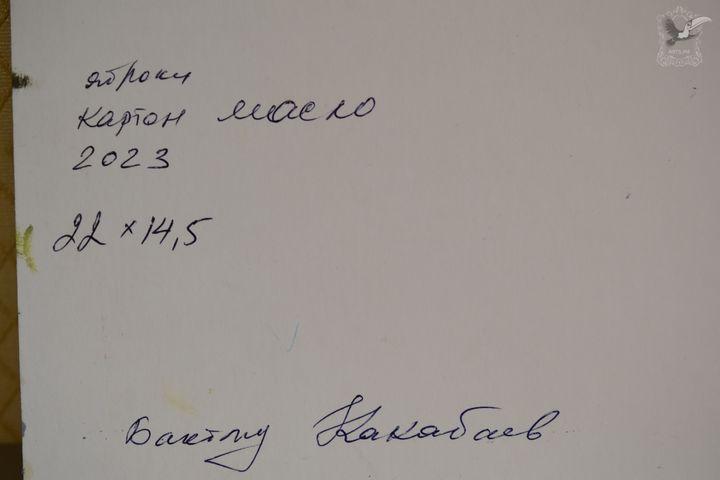 яброки
Картон Масло
2023
22 x 14,5
Бактлу Какабаев